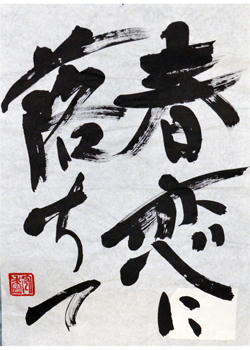 春恋に
落ちて